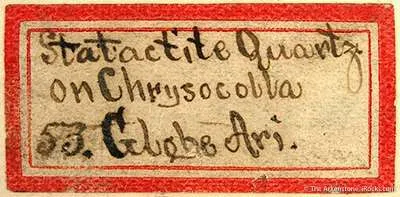 Stalactite Quartz
on Chrysocolla
53. Globe Ari.
© The Arkenstone, iRocks.com